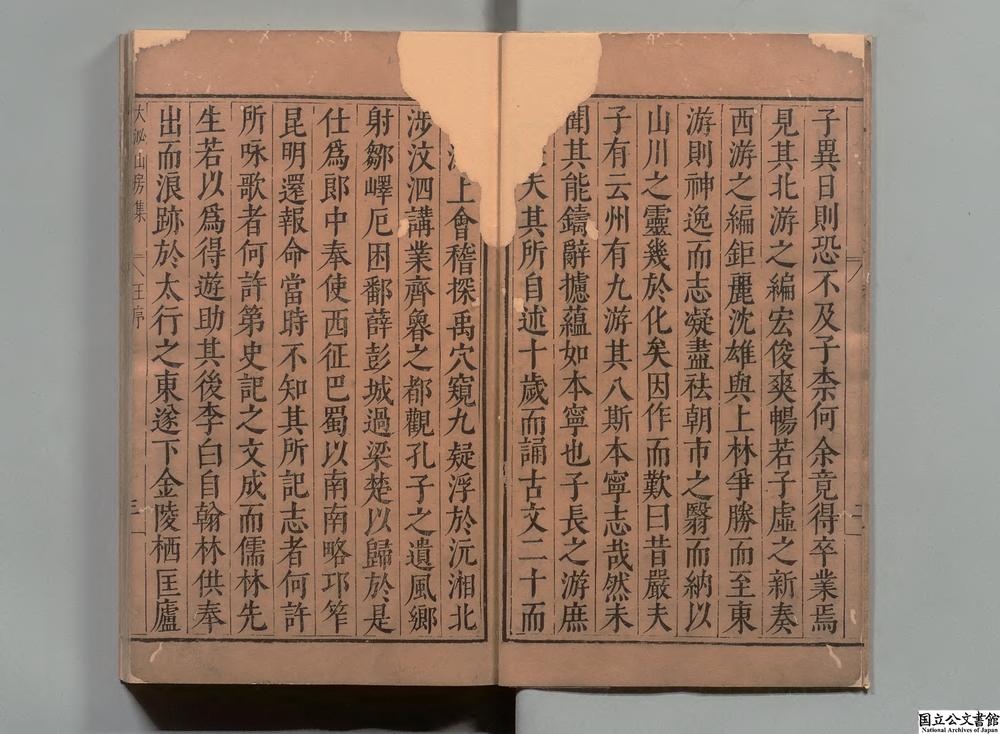 子異日則恐不及子柰何余竟得卒業焉
見其北游之編宏俊爽暢若子虛之新奏
西游之編鉅麗沈雄與上林爭勝而至東
游則神逸而志凝盡袪朝市之翳而納以
山川之靈幾於化矣因作而歎曰昔嚴夫
子有云州有九游其八斯本寧志哉然未
聞其能鑄辭攄蘊如本寧也子長之游庶
夫其所自述十歲而誦古文二十而
上會稽探禹穴窺九疑浮於沅湘北
涉汶泗講業齊魯之都觀孔子之遺風鄉
射鄒嶧厄困鄱薛彭城過梁楚以歸於是
仕爲郎中奉使西征巴蜀以南南略邛笮
昆明還報命當時不知其所記志者何許
所咏歌者何許第史記之文成而儒林先
生若以爲得遊助其後李白自翰林供奉
出而浪跡於太行之東遂下金陵栖匡廬
大泌山房集
王序
三
二
国立公文書館
National Archives of Japan